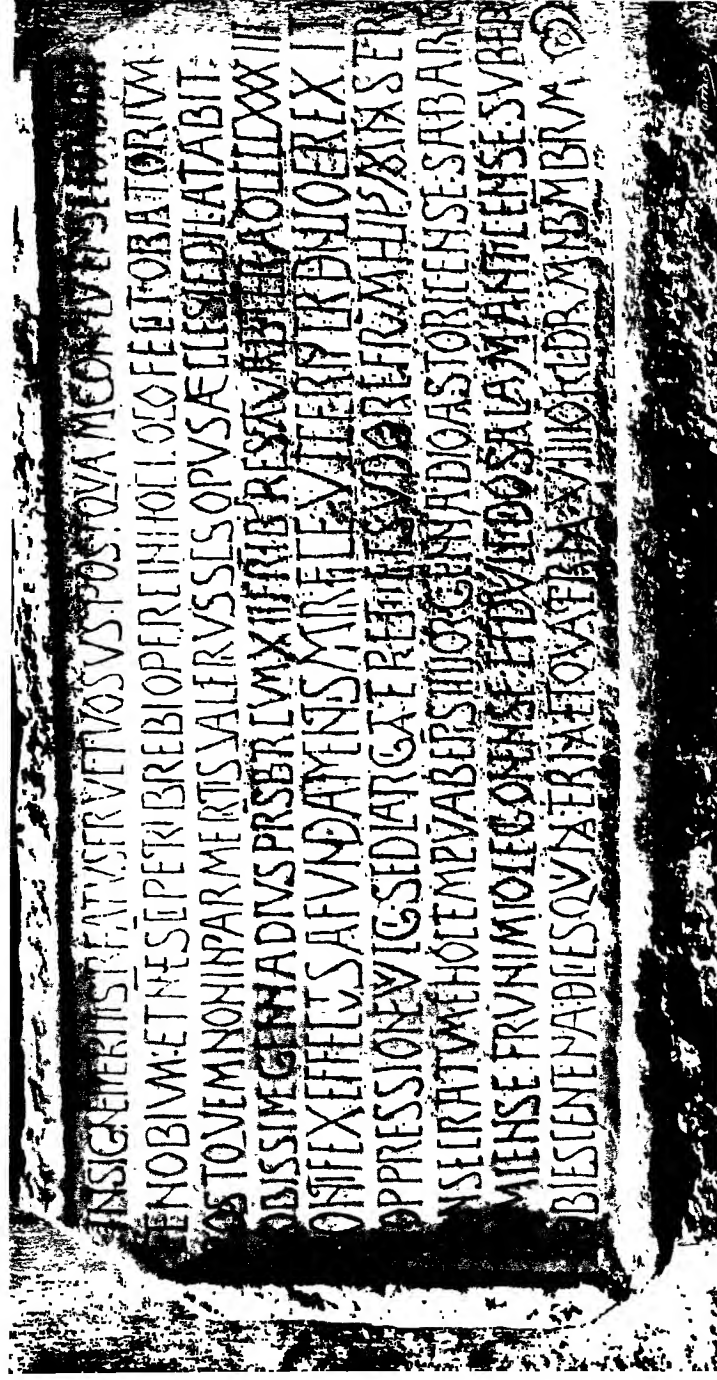 INSIGNE MERITIS BEATVS FRVCTVOSVS POSTQVAM CONPLVTENSE CONDIDIT
CENOBIVM ET NME SCI PETRI BREBI OPERE IN HOC LOCO FECIT ORATORIVM
POST QVEM NON INPAR MERITIS VALERIVS SCS OPVS ÆCLESIE DILATABIT
NOBISSIME GENNADIVS PRSBR CVM XII FRIB RESTAVRABIT ERA DCCCCXXXIII
PONTIFEX EFFECTVS A FVNDAMENTIS MIRIFICE VT CERNITVR DENVO EREXIT
OPPRESSIONE VLGI SED LARGITATE PRETII ET SVDORE FRVM HVIVS MNSTRI
CONSECRATVM E HOC TEMPLVM AB EPS IIIIOR GENNADIO ASTORICENSE SABARICO
DVMIENSE FRVNIMIO LEGIONENSE ET DVLCIDIO SALAMANTICENSE SVB ERA
NOBIES CENTENA DECIES QVINA TERNA ET QVATERNA VIIII KLDRM NBMBRM